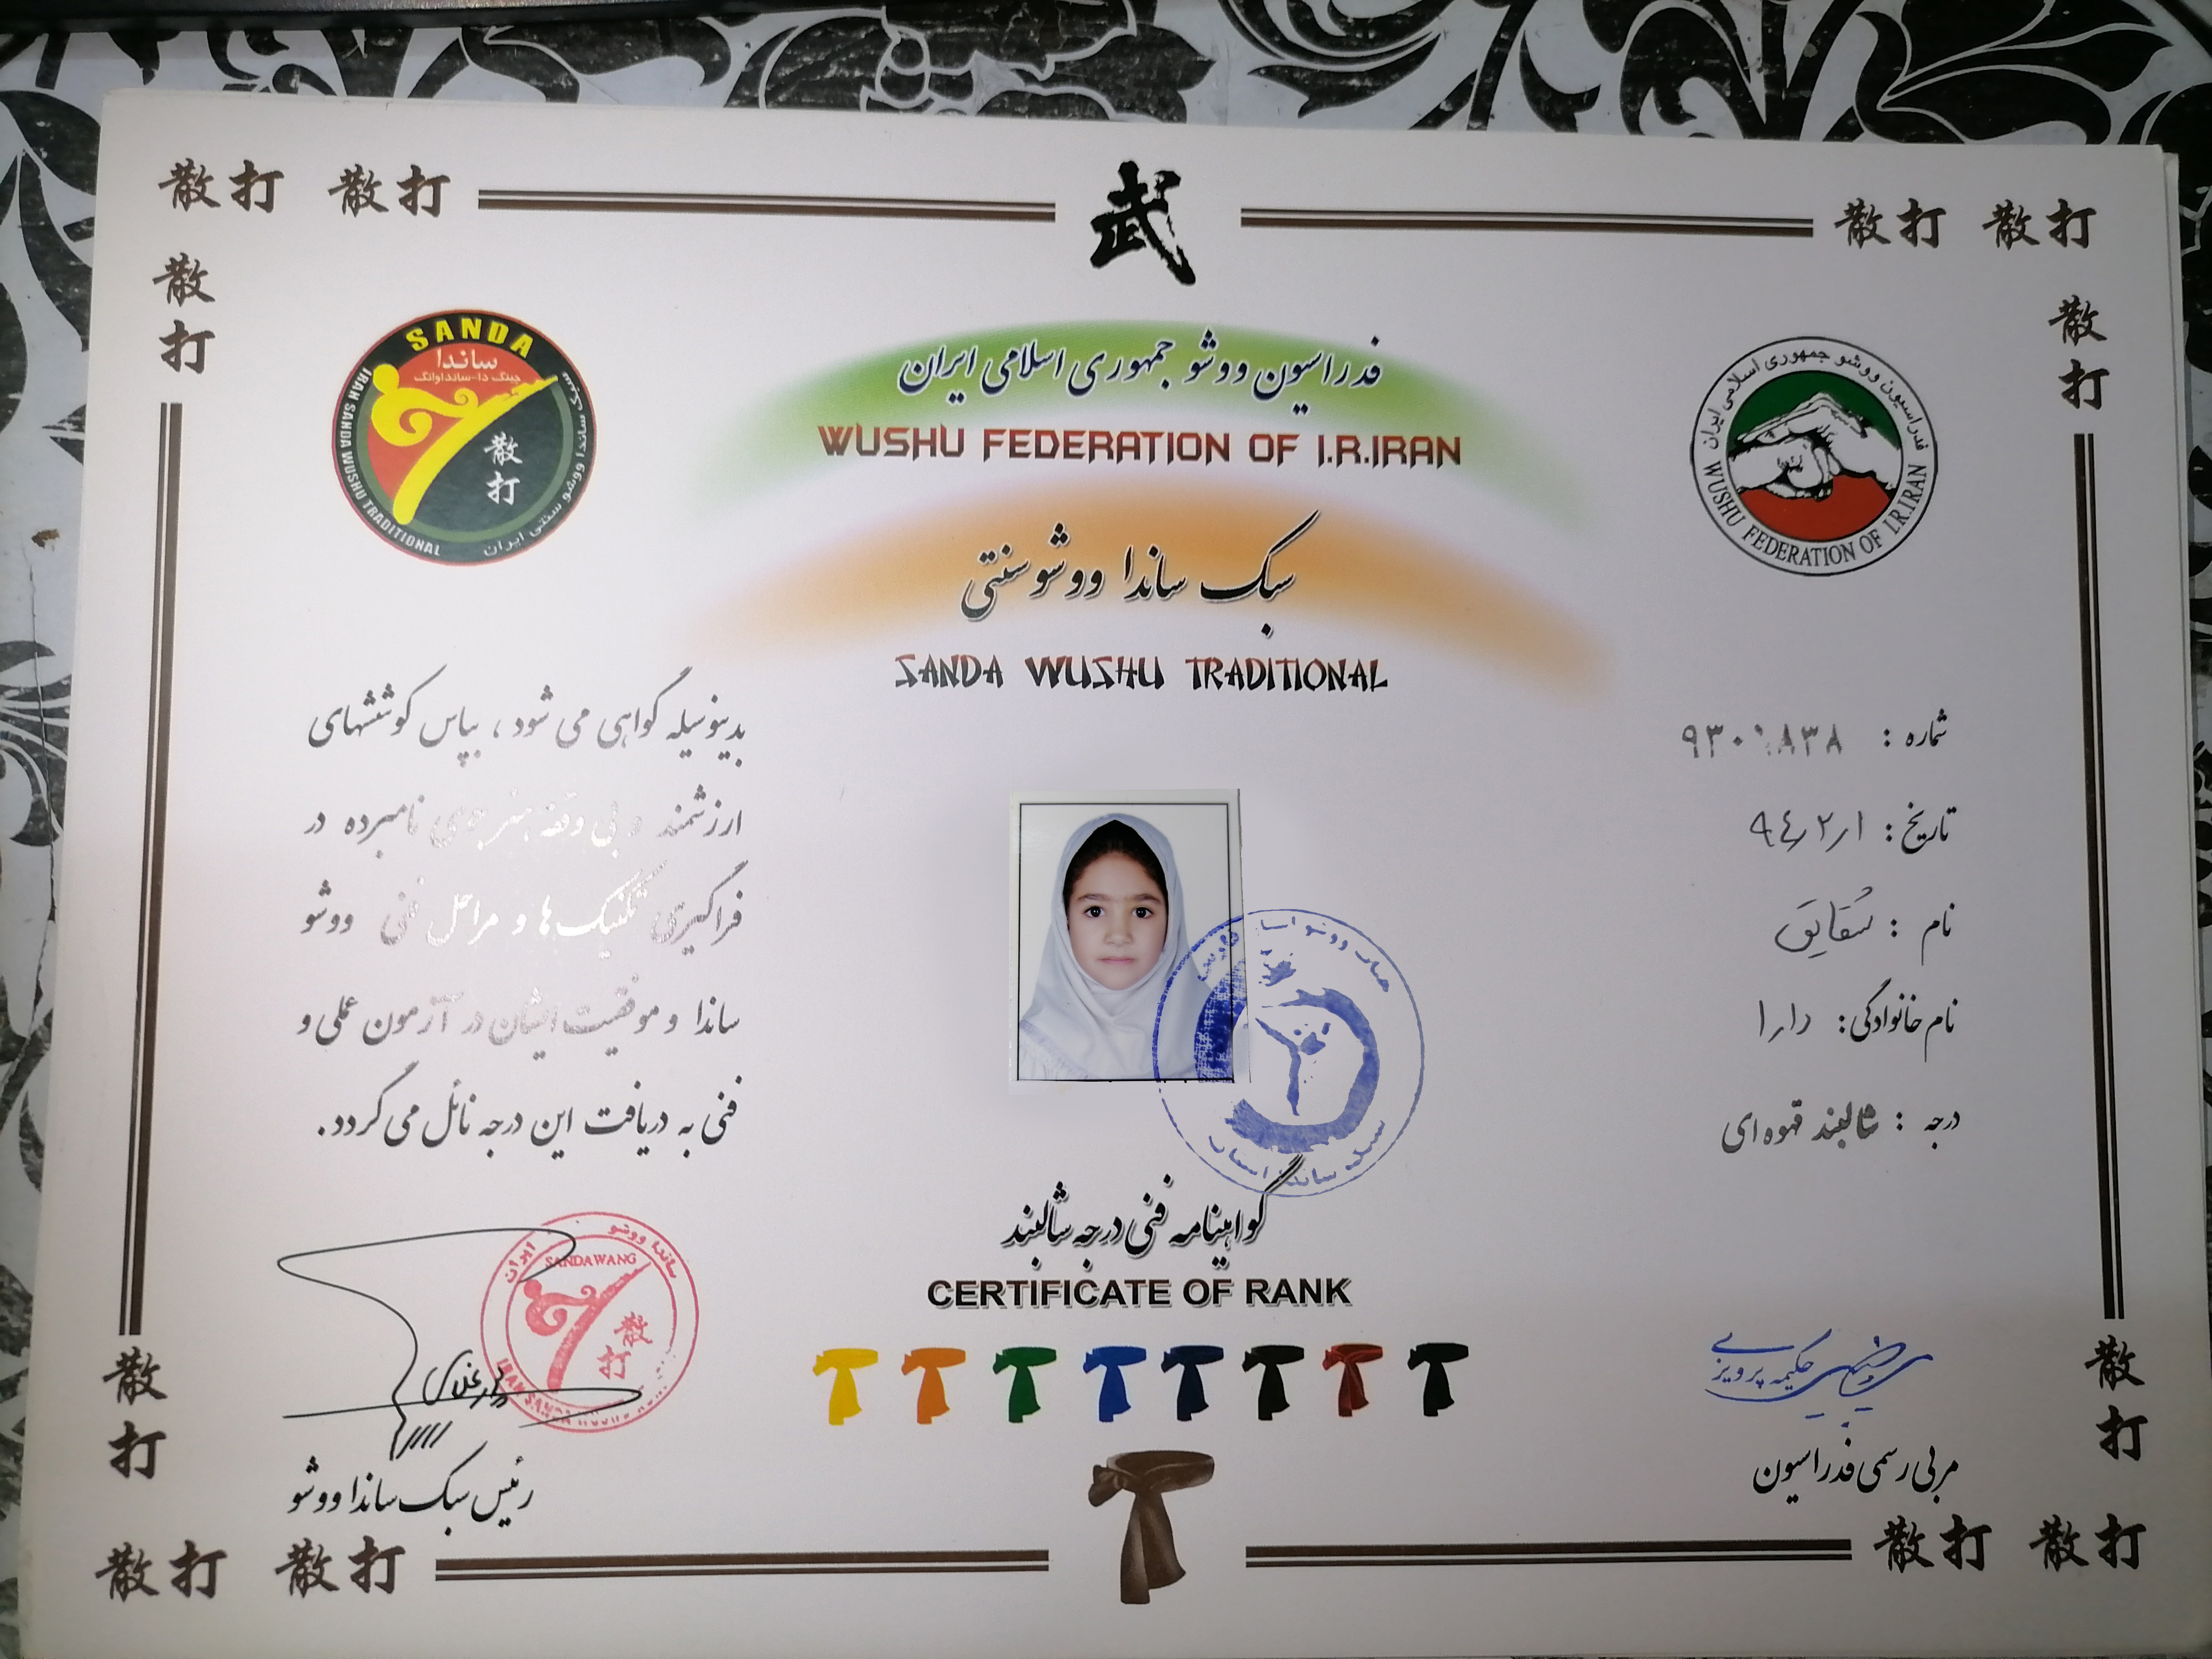 散打 散打
武
散打 散打
散打
散打
SANDA
ساندا
جینگ دا-سانداوانگ
散打
IRAN SANDA WUSHU TRADITIONAL
سبک ساندا ووشو سنتی ایران
فدراسیون ووشو جمهوری اسلامی ایران
WUSHU FEDERATION OF I.R.IRAN
سبک ساندا ووشو سنتی
SANDA WUSHU TRADITIONAL
فدراسیون ووشو جمهوری اسلامی ایران
WUSHU FEDERATION OF I.R.IRAN
شماره :
تاریخ : ۹٤/۲/۱
نام : شقایق
نام خانوادگی : دارا
درجه : شالبند قهوه ای
بدینوسیله گواهی می شود ، بپاس کوششهای
ارزشمند و بی وقفه هنرجوی نامبرده در
فراگیری تکنیک ها و مراحل فنی ووشو
ساندا و موفقیت ایشان در آزمون عملی و
فنی به دریافت این درجه نائل می گردد.
سبک ساندا استان
گواهینامه فنی درجه شالبند
CERTIFICATE OF RANK
ساندا ووشو ایران
SANDA WANG
散打
IRAN SANDA
رئیس سبک ساندا ووشو
حکیمه پرویزی
مربی رسمی فدراسیون
散打
散打
散打 散打
散打 散打